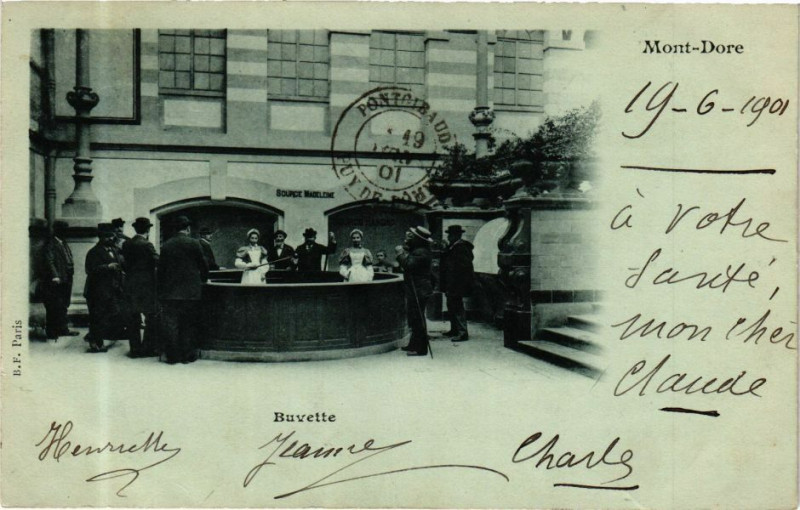 Mont-Dore
19-6-1901
à votre
santé,
mon cher
Claude
PONTGIBAUD
19
01
PUY-DE-DÔME
SOURCE MADELEINE
B.F. Paris
Buvette
Henriette Jeanne Charles